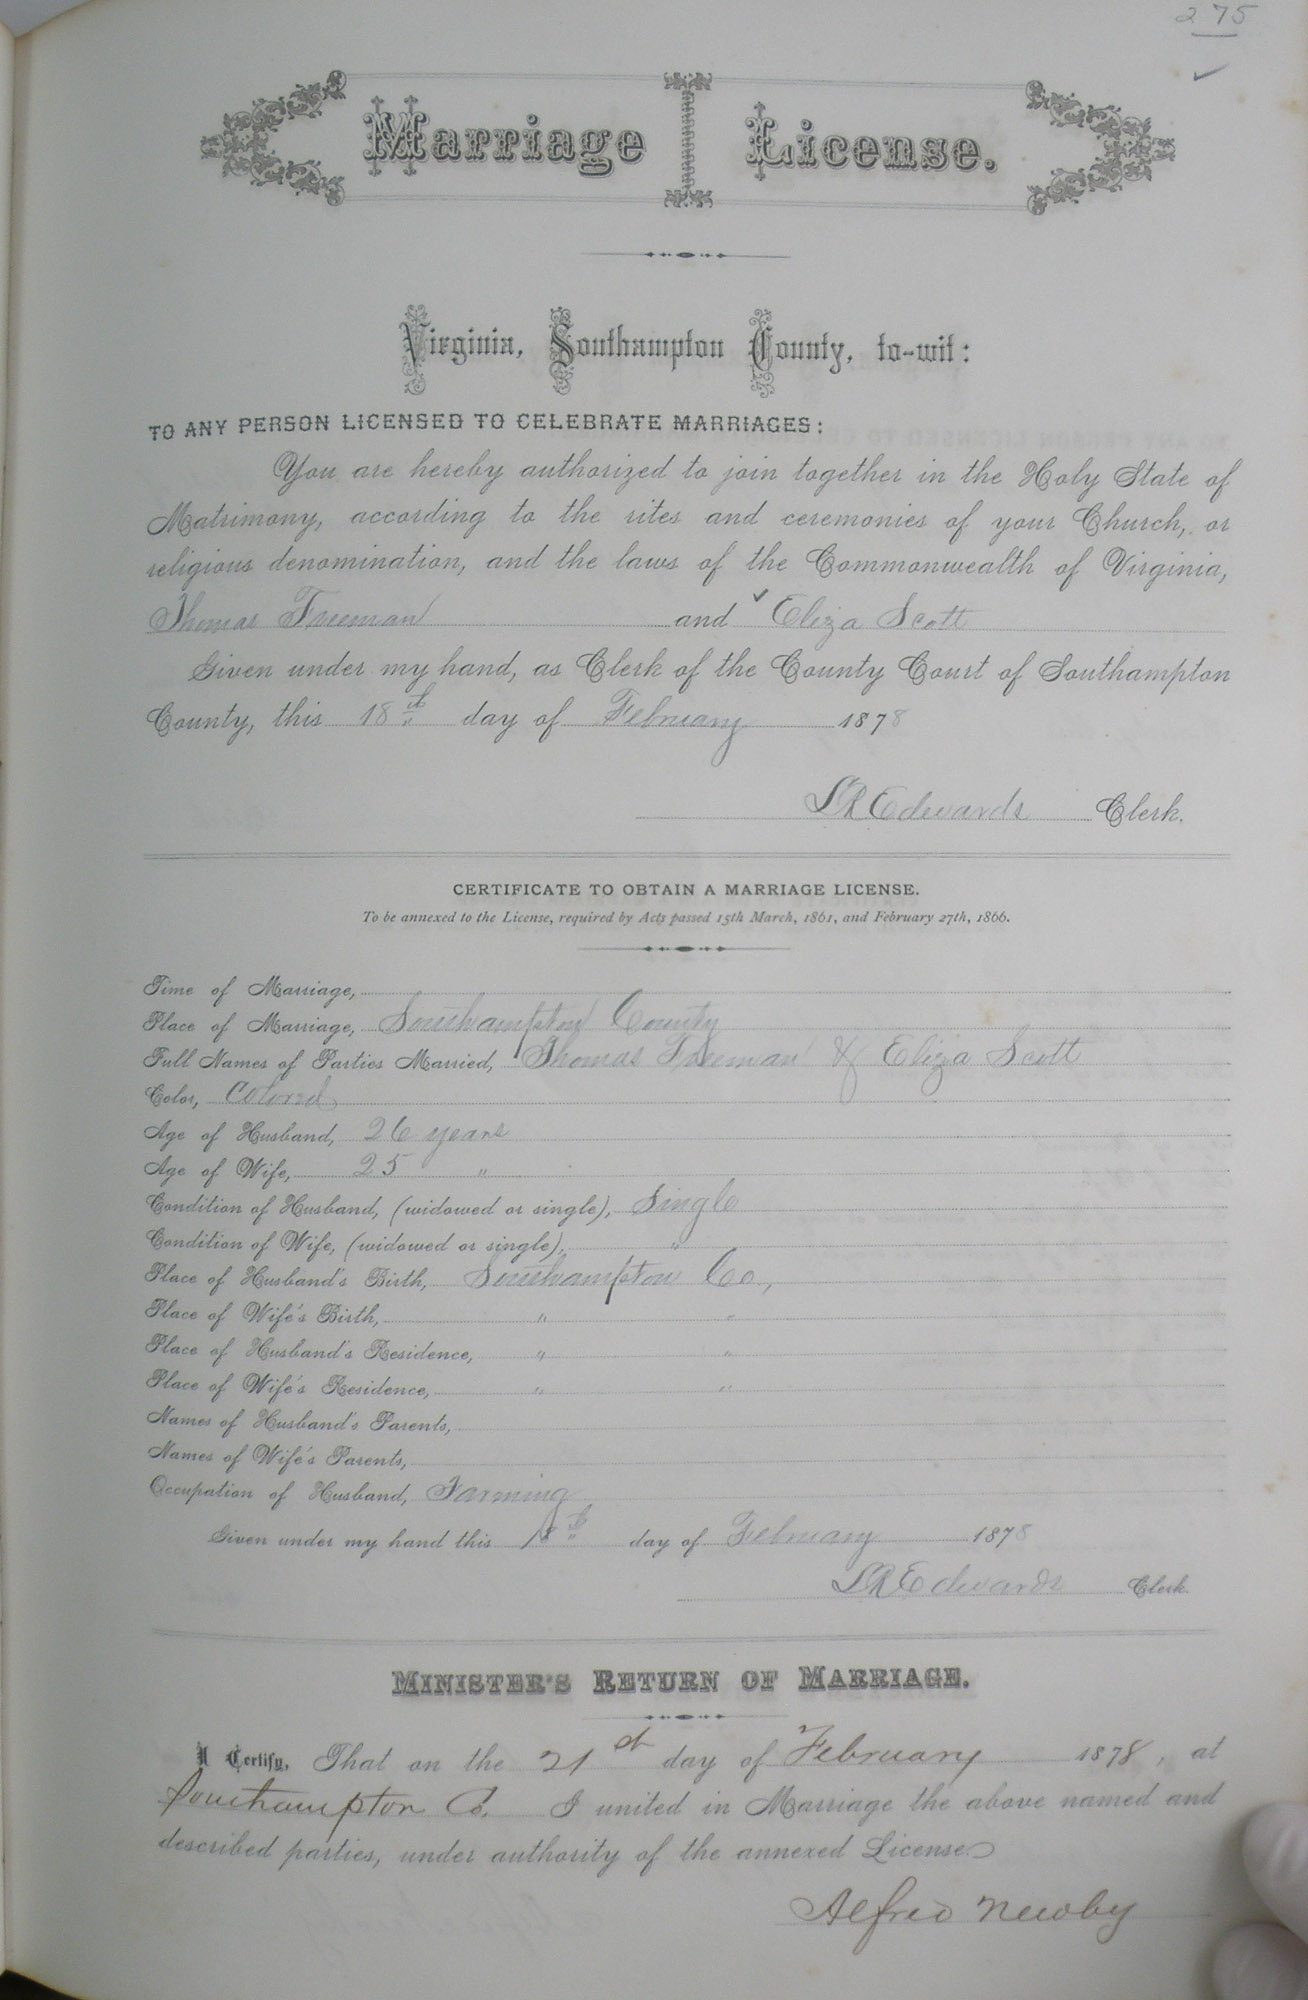 275
Marriage License.
Virginia, Southampton County, to-wit:
TO ANY PERSON LICENSED TO CELEBRATE MARRIAGES:
You are hereby authorized to join together in the Holy State of
Matrimony, according to the rites and ceremonies of your Church, or
religious denomination, and the laws of the Commonwealth of Virginia,
Thomas Freeman and ✓ Eliza Scott
Given under my hand, as Clerk of the County Court of Southampton
County, this 18th day of February 1878
LR Edwards Clerk.
CERTIFICATE TO OBTAIN A MARRIAGE LICENSE.
To be annexed to the License, required by Acts passed 15th March, 1861, and February 27th, 1866.
Time of Marriage,
Place of Marriage, Southampton County
Full Names of Parties Married, Thomas Freeman & Eliza Scott
Color, Colored
Age of Husband, 26 years
Age of Wife, 25 "
Condition of Husband, (widowed or single), Single
Condition of Wife, (widowed or single), "
Place of Husband's Birth, Southampton Co.,
Place of Wife's Birth, " "
Place of Husband's Residence, " "
Place of Wife's Residence, " "
Names of Husband's Parents,
Names of Wife's Parents,
Occupation of Husband, Farming
Given under my hand this 18th day of February 1878
LR Edwards Clerk.
MINISTER'S RETURN OF MARRIAGE.
I Certify, That on the 21st day of February 1878, at
Southampton Co. I united in Marriage the above named and
described parties, under authority of the annexed License
Alfred Newby